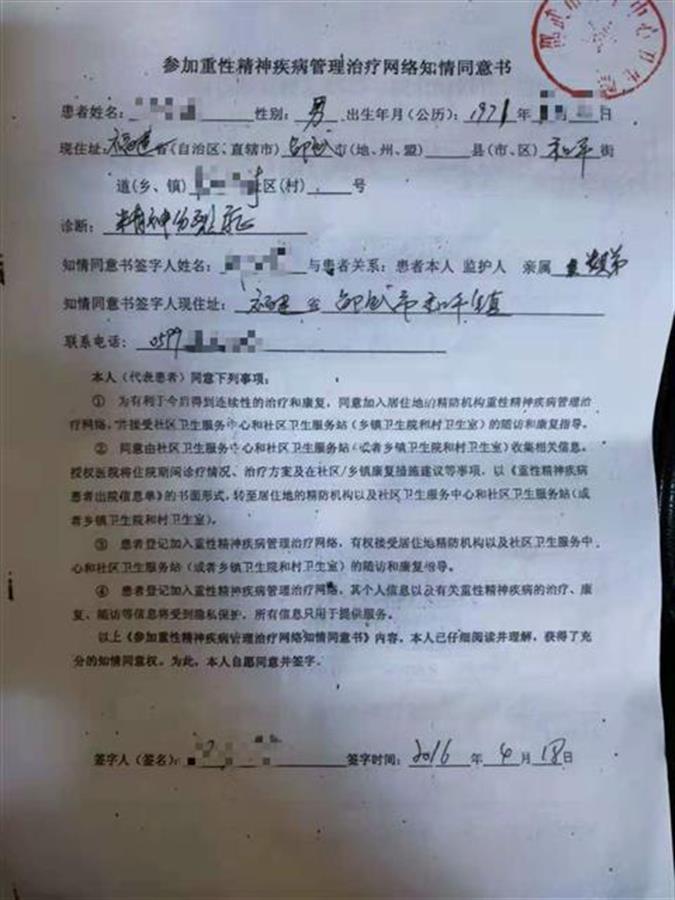 参加重性精神疾病管理治疗网络知情同意书
患者姓名： 性别：男 出生年月(公历)：1971年 日
现住址：福建省(自治区、直辖市)邵武市(地、州、盟) 县(市、区)和平街
道(乡、镇) 社区(村) 号
诊断：精神分裂症
知情同意书签字人姓名： 与患者关系：患者本人 监护人 亲属 弟
知情同意书签字人现住址：福建省邵武市和平镇
联系电话：0599
本人（代表患者）同意下列事项：
① 为有利于今后得到连续性的治疗和康复，同意加入居住地的精防机构重性精神疾病管理治
疗网络，并接受社区卫生服务中心和社区卫生服务站(乡镇卫生院和村卫生室)的随访和康复指导。
② 同意由社区卫生服务中心和社区卫生服务站(或者乡镇卫生院和村卫生室)收集相关信息。
授权医院将住院期间诊疗情况、治疗方案及在社区/乡镇康复措施建议等事项，以《重性精神疾病
患者出院信息单》的书面形式，转至居住地的精防机构以及社区卫生服务中心和社区卫生服务站(或
者乡镇卫生院和村卫生室)。
③ 患者登记加入重性精神疾病管理治疗网络，有权接受居住地精防机构以及社区卫生服务中
心和社区卫生服务站(或者乡镇卫生院和村卫生室)的随访和康复指导。
④ 患者登记加入重性精神疾病管理治疗网络，其个人信息以及有关重性精神疾病的治疗、康
复、随访等信息将受到隐私保护，所有信息只用于提供服务。
以上《参加重性精神疾病管理治疗网络知情同意书》内容，本人已仔细阅读并理解，获得了充
分的知情同意权。为此，本人自愿同意并签字。
签字人（签名）： 签字时间：2016年4月18日